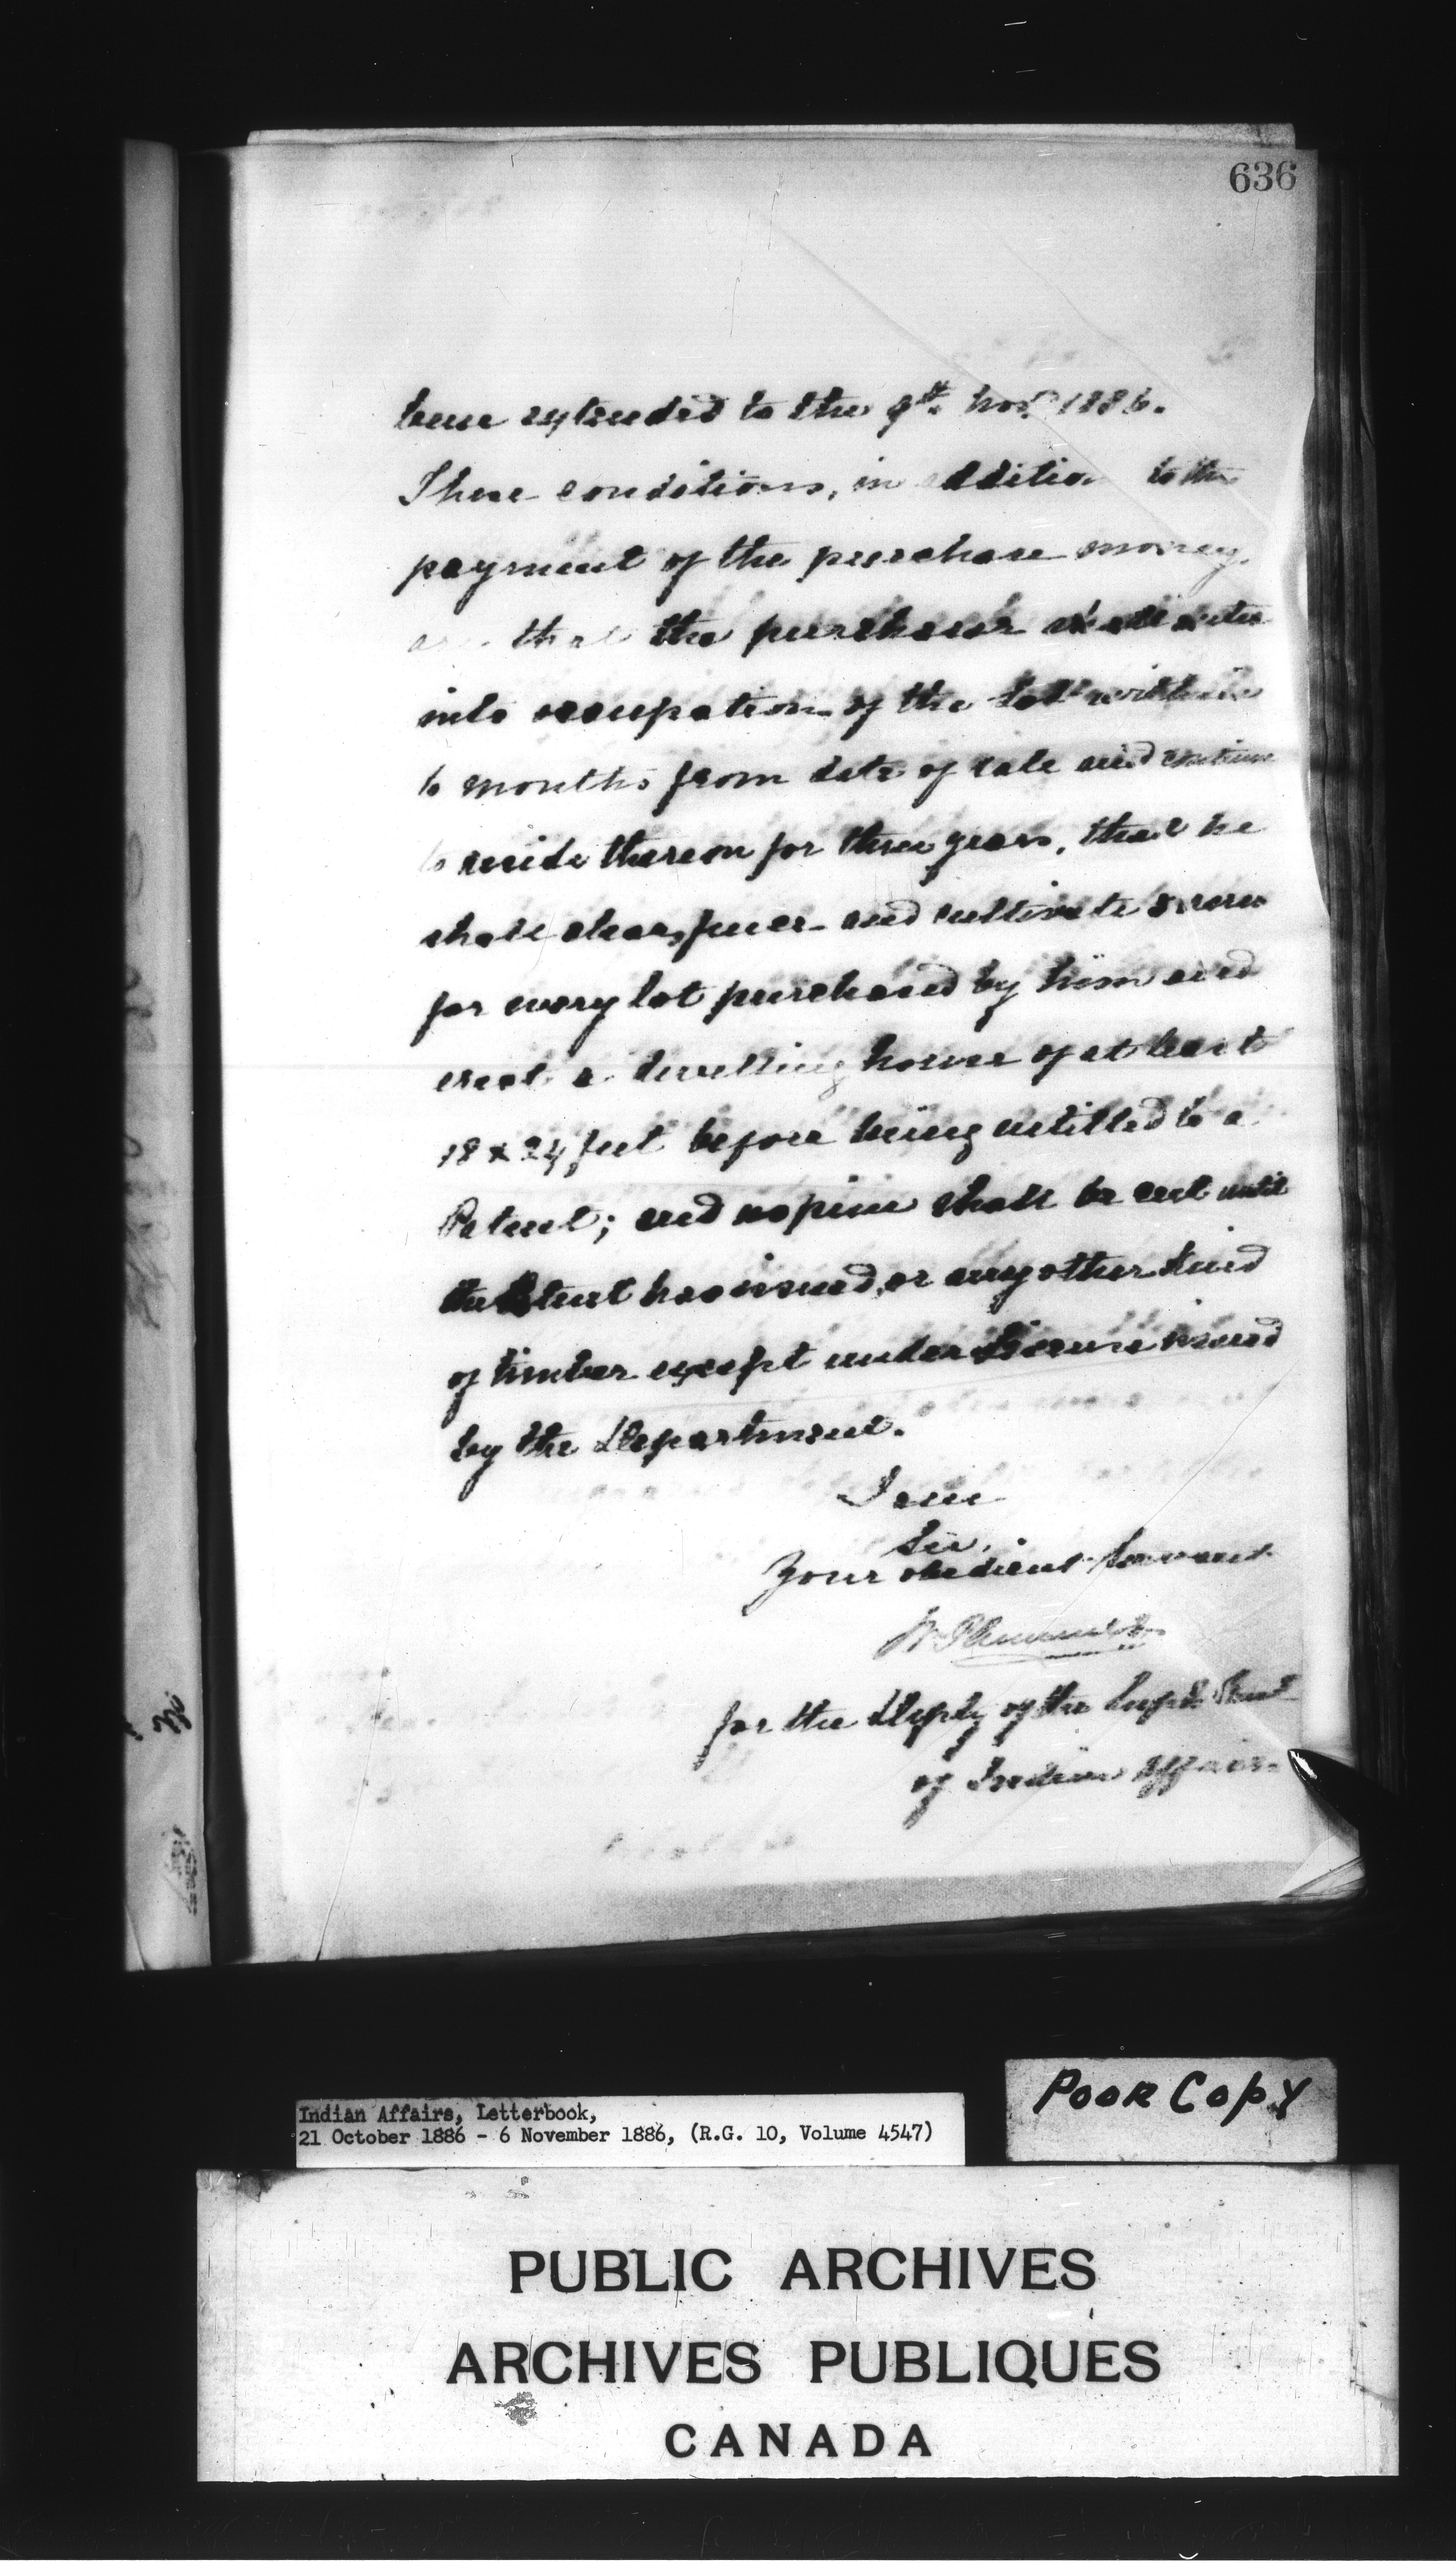 636
been extended to the 9th Nov. 1886.
These conditions, in addition to the
payment of the purchase money,
are that the purchaser shall enter
into occupation of the lot within
6 months from date of sale and continue
to reside thereon for three years, that he
shall clear, fence and cultivate 5 acres
for every lot purchased by him and
erect a dwelling house of at least
18 x 24 feet before being entitled to a
Patent; and no pine shall be cut until
the Patent has issued, or any other kind
of timber except under License issued
by the Department.
I am
Sir,
Your obedient Servant
for the Depty of the Supt. Genl
of Indian Affairs.
Indian Affairs, Letterbook,
21 October 1886 - 6 November 1886, (R.G. 10, Volume 4547)
POOR COPY
PUBLIC ARCHIVES
ARCHIVES PUBLIQUES
CANADA